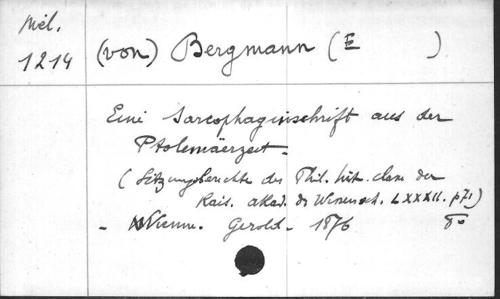 Mél.
1214
(von) Bergmann (E )
Eine Sarcophaginschrift aus der
Ptolemäerzeit.
(Sitzungsberichte der Phil. hist. classe der
Kais. akad. der Wissensch. LXXXII. p71)
- Vienn. Gerold. 1876 8°